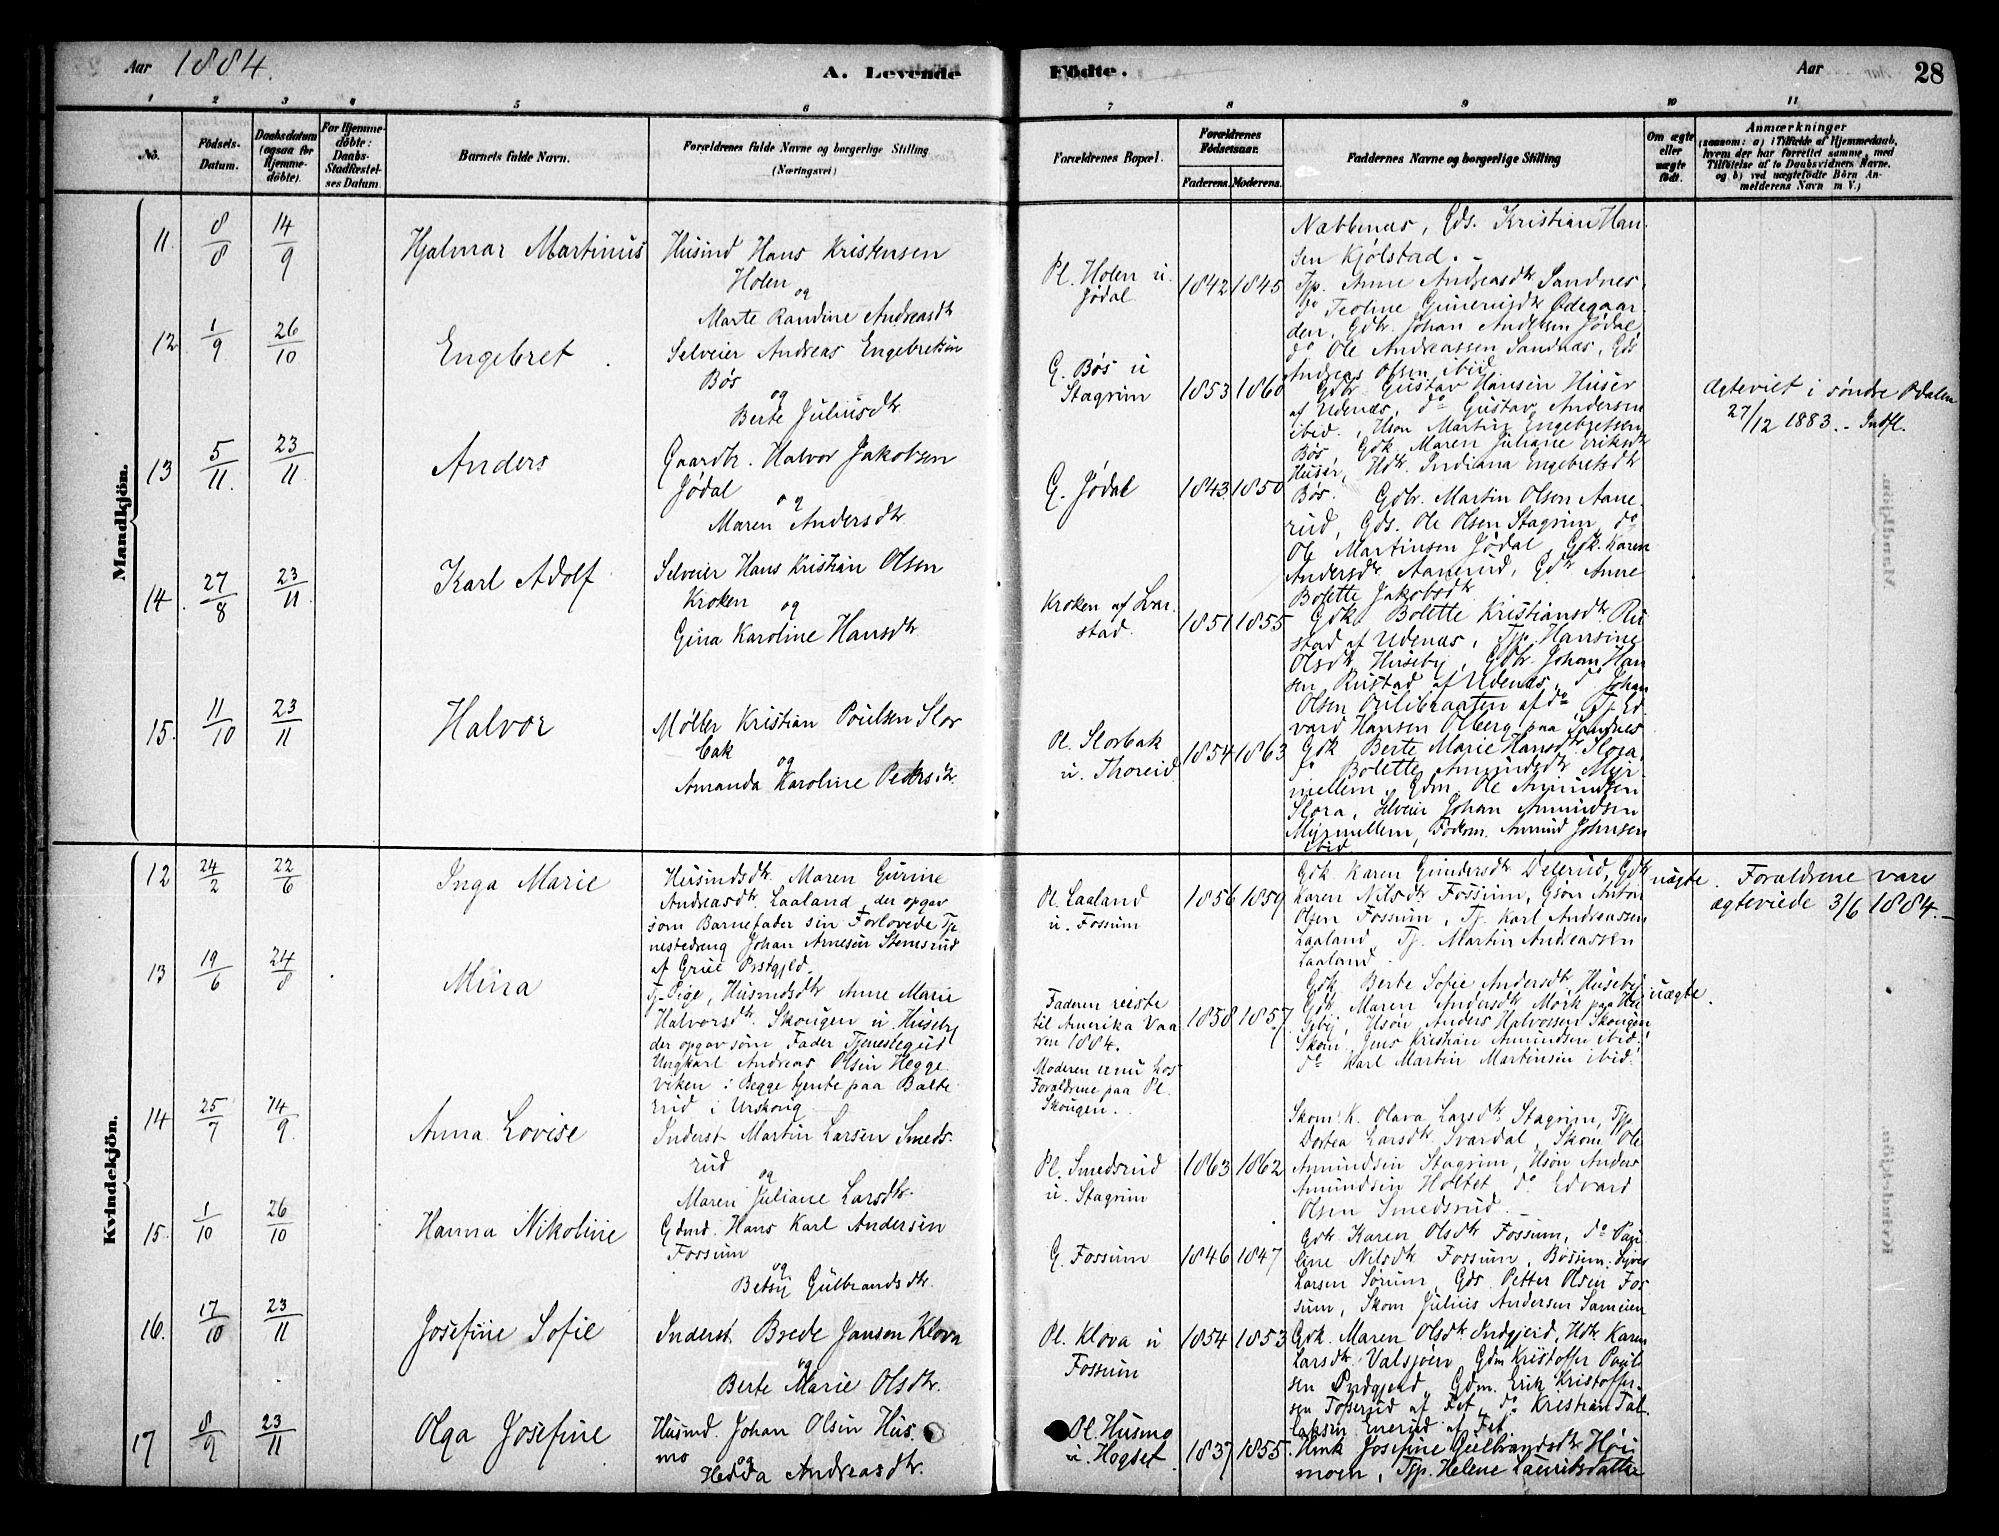 Aar 1884.
A. Levende Födte.
Aar
28
1 2 3 4 5 6 7 8 9 10 11
No.
Födsels-Datum.
Daabsdatum (ogsaa for Hjemme-döbte).
For Hjemme-döbte: Daabs-Stadfæstel-ses Datum
Barnets fulde Navn.
Forældrenes fulde Navne og borgerlige Stilling
(Næringsvei)
Forældrenes Bopæl.
Forældrenes Födselsaar.
Faderens. Moderens.
Faddernes Navne og borgerlige Stilling
Om ægte eller uægte födt.
Anmærkninger
(saasom: a) i Tilfælde af Hjemmedaab, hvem der har forrettet samme, med Tilföielse af to Daabsvidners Navne, og b) ved uægtefödte Börn An-melderens Navn m V.)
Mandkjön.
11. 8/8 14/9 Hjalmar Martinus
Husmd Hans Kristensen
Holen
og
Marte Randine Andreasdtr
Pl. Holen u.
Jødal
1842 1845
Næbbenæs, Gds. Kristian Han-
sen Kjølstad. -
Tjp. Anne Andreasdtr Sandnes
do Teoline Gunerusdtr Ødegaar-
den, Gdbr. Johan Andersen Jødal,
do Ole Andreassen Sandnæs, Gds
Andreas Olsen ibid.
12 1/9 26/10 Engebret.
Selveier Andreas Engebretsen
Bøs
og
Berte Juliusdtr
G. Bøs u
Stagrim
1853 1860
Gdbr. Gustav Hansen Huser
af Udenæs, do Gustav Andersen
ibid., Hson Martin Engebretsen
Bøs, Gdk Maren Juliane Eriksdtr
Huser, Hdtr. Indiana Engebretsdtr
Bøs.
Ægteviet i søndre Odalen
27/12 1883. - Indfl.
13 5/11. 23/11. Anders
Gaardbr. Halvor Jakobsen
Jødal
og
Maren Andersdtr.
G. Jødal
1843 1850
Gdbr. Martin Olsen Aane-
rud, Gds. Ole Olsen Stagrim, do
Ole Martinsen Jødal, Gdk. Karen
Andersdtr Aanerud, Gdtr Anne
Bolette Jakobsdtr.
14. 27/8 23/11. Karl Adolf
Selveier Hans Kristian Olsen
Kroken
og
Gina Karoline Hansdtr
Kroken af Svar-
stad.
1851 1855
Gdk. Bolette Kristiansdtr Ru-
stad af Udenæs, Tjp. Hansine
Olsdtr Huseby, Gdbr. Johan Han-
sen Rustad af Udenæs, do Johan
Olsen Øulibraaten af do Tj. Ed-
vard Hansen Olberg paa Sandnes
15. 11/10 23/11 Halvor
Møller Kristian Poulsen Slor-
bak
og
Amanda Karoline Pedersdtr.
Pl. Slorbak
u. Thoreid
1854 1863
Gdk Berte Marie Hansdtr Slora,
do Bolette Amundsdtr Myr-
mellem, Gdm. Ole Amundsen
Slora, Selveier Johan Amundsen
Myrmellem, Foderm. Amund Johnsen
ibid.
Kvindekjön.
12 24/2 22/6 Inga Marie
Husmdsdtr. Maren Gurine
Andreasdtr Laaland, der opgav
som Barnefader sin Forlovede Tje-
nestedreng Johan Arnesen Stenesrud
af Grue Præstgjeld.
Pl. Laaland
u. Fossum
1856 1859
Gdk Karen Gundersdtr Delerud, Gdk
Karen Nilsdtr Fossum, Gson Anton
Olsen Fossum, Tj. Karl Andreassen
Laaland, Tj. Martin Andreassen
Laaland.
uægte.
Forældrene vare
ægteviede 3/6 1884. -
13 19/6 24/8 Mina
Tj-Pige, Husmdsdtr Anne Marie
Halvorsdtr. Skougen u. Huseby
der opgav som Fader Tjenestegut
Ungkarl Andreas Olsen Hegge-
viken: Begge tjente paa Balte-
rud i Urskoug
Faderen reiste
til Amerika Vaa-
ren 1884.
Moderen er nu hos
Forældrene paa Pl.
Skougen.
1858 1857
Gdk Berte Sofie Andersdtr, Huseby
Gdk Maren Andersdtr Mork paa Hu-
seby, Hsøn Anders Halvorsen Skougen,
Skom. Jens Kristian Amundsen ibid.
do Karl Martin Martinsen ibid.
uægte.
14 25/7 14/9. Anna Lovise
Inderst Martin Larsen Smeds-
rud
og
Maren Juliane Larsdtr.
Pl. Smedsrud
u. Stagrim
1863 1862
Skom. K. Olava Larsdtr. Stagrim, Tjp.
Dortea Larsdtr Svardal, Skom. Ole
Amundsen Stagrim, Hsøn Anders
Amundsen Holtet, do. Edvard
Olsen Smedsrud.
15. 1/10 26/10 Hanna Nikoline
Gdmd. Hans Karl Andersen
Fossum
og
Betsy Gulbrandsdtr.
G. Fossum
1846 1847
Gdk Karen Olsdtr Fossum, do Pau-
line Nilsdtr Fossum,
Larsen Sørum, Gds. Petter Olsen Fos-
sum, Skom Julius Andersen
16. 17/10 23/11 Josefine Sofie
Inderst Brede Jansen Klova
og
Berte Marie Olsdtr.
Pl. Klova u
Fossum
1854 1853
Gdk. Maren Olsdtr Indgjerd, Hdtr Karen
Larsdtr. Valsjøen Gdm Kristoffer Paul-
sen Indgjerd, Gdm. Erik Kristoffer-
sen Tosserud af Fet, do Kristian Tol-
lefsen Enerud af Fet
17 8/9 23/11 Olga Josefine
Husmd. Johan Olsen Hus-
mo og
Hedda Andreasdtr.
Pl. Husmo
u. Hogset.
1837 1855.
Hmk Josefine Gulbrandsdtr Høii-
moen, Tjp. Helene Lauritsdatter